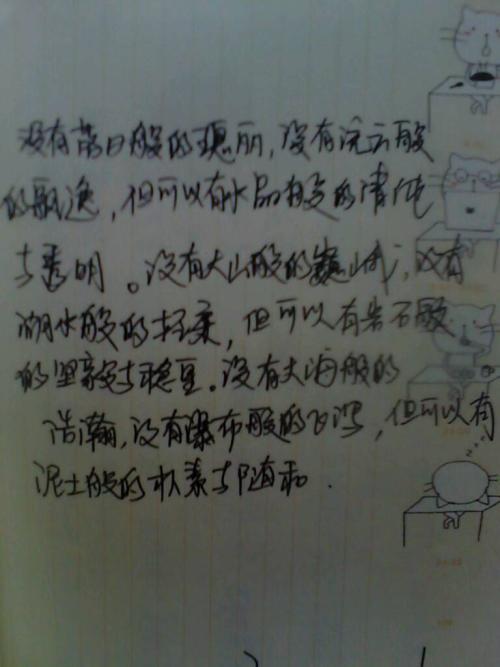 没有落日般的瑰丽，没有流云般
的飘逸，但可以有水晶般的清纯
与透明。没有大山般的巍峨，没有
湖水般的轻柔，但可以有岩石般
的坚毅与稳重。没有大海般的
浩瀚，没有瀑布般的飞泻，但可以有
泥土般的朴素与随和．